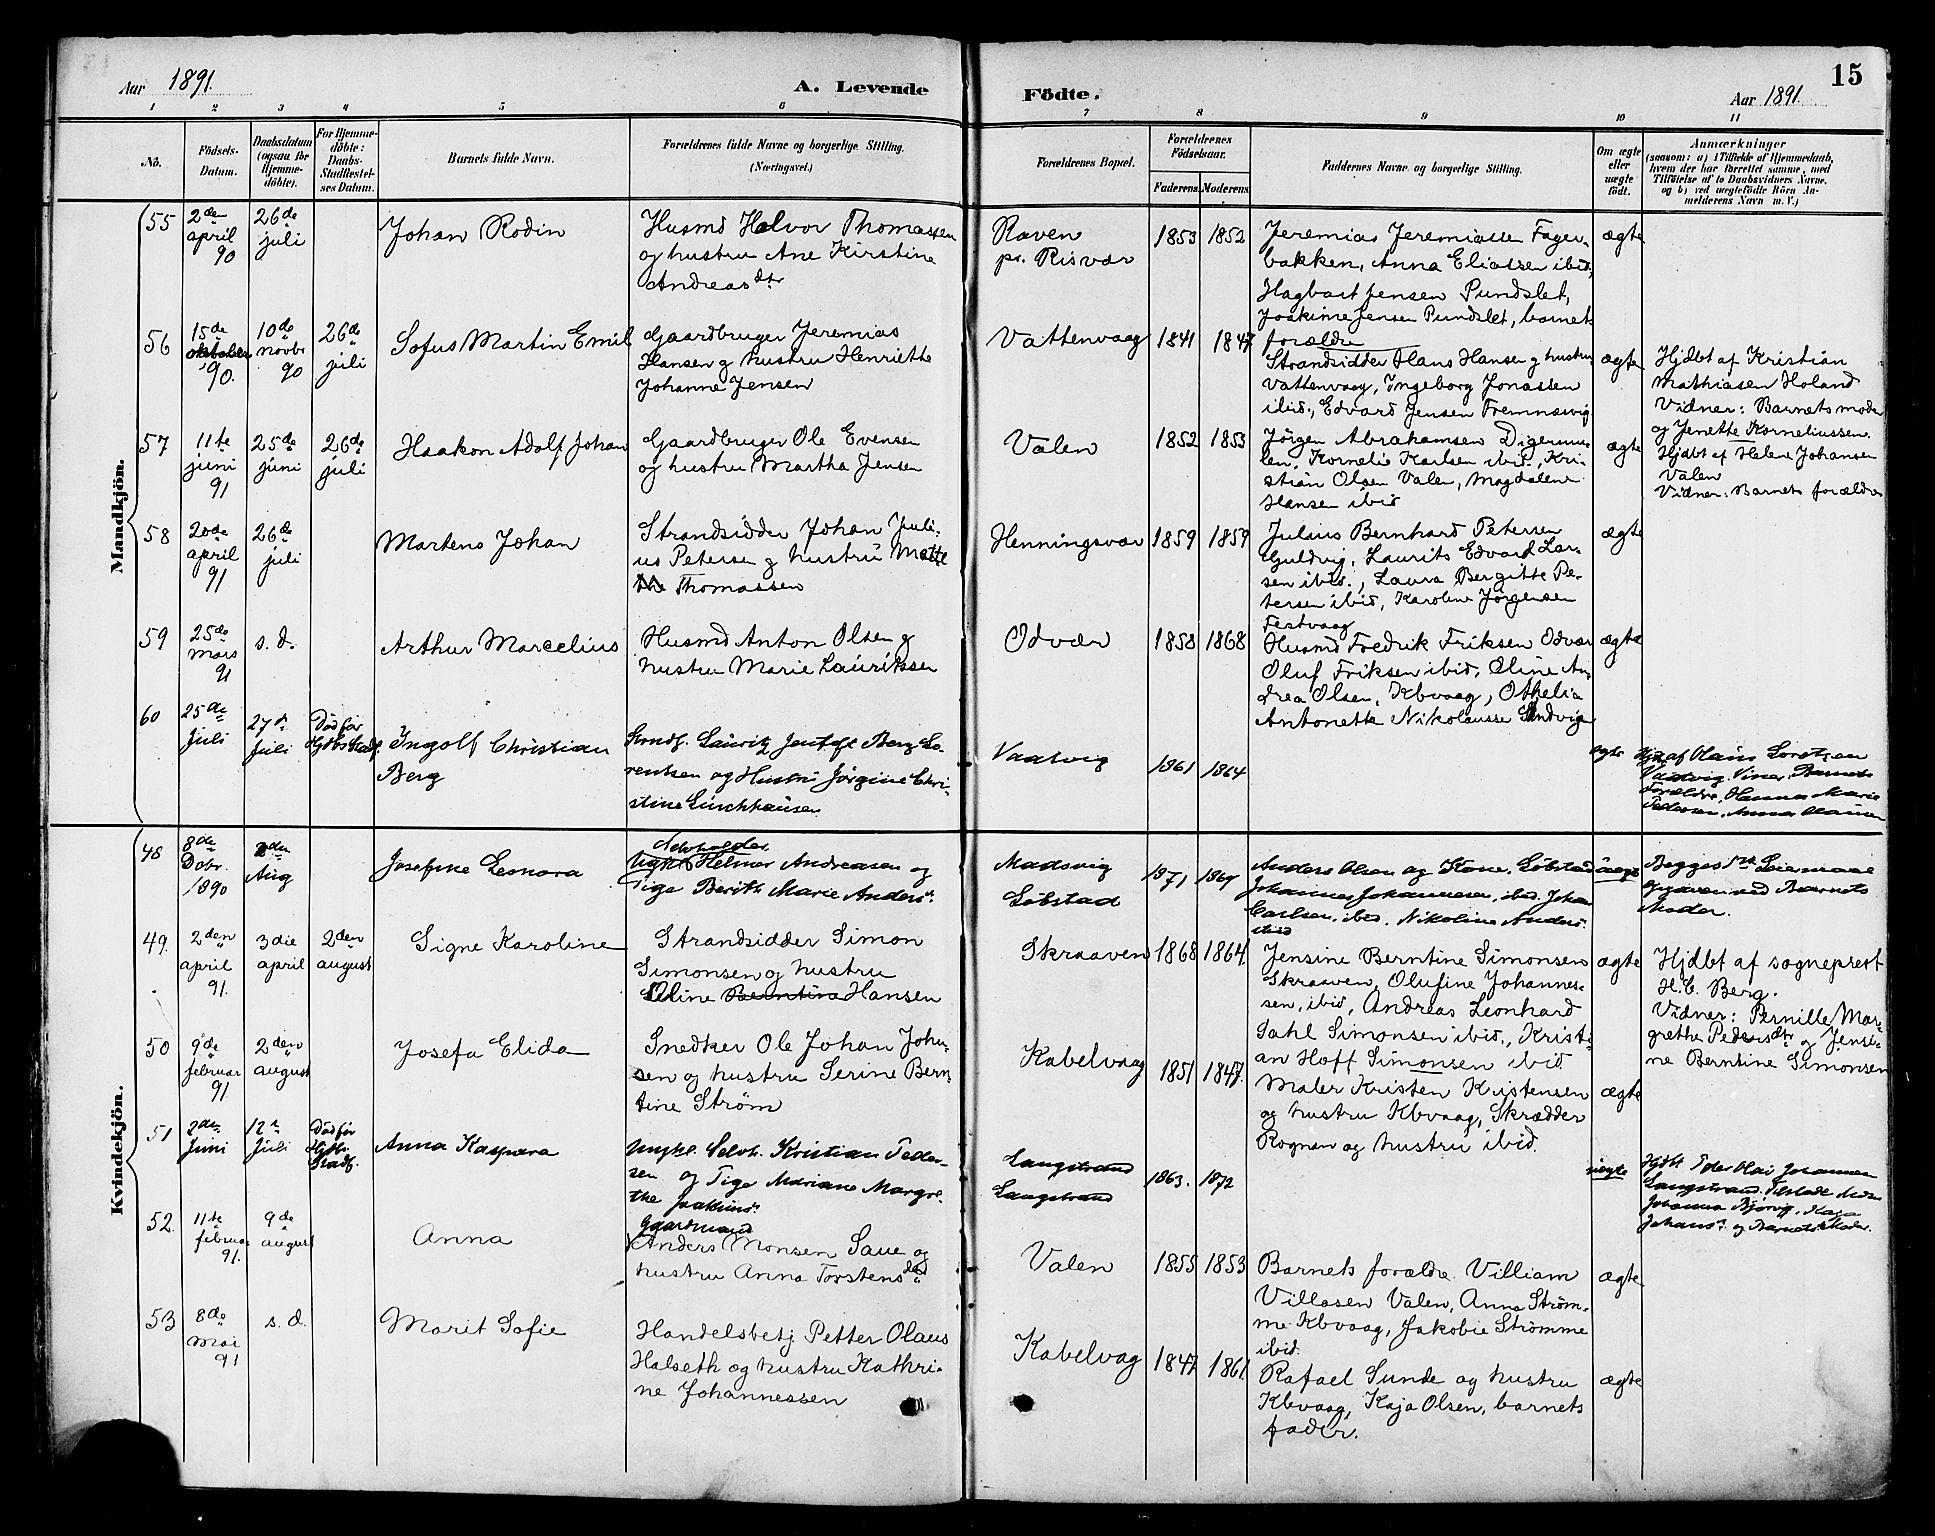 Aar 1891. A. Levende Födte. Aar 1891. 15
1 2 3 4 5 6 7 8 9 10 11
No.
Födsels-
Datum.
Daabsdatum
(ogsaa for
Hjemme-
döbte).
For Hjemme-
döbte:
Daabs-
Stadfæstel-
ses Datum.
Barnets fulde Navn.
Forældrenes fulde Navne og borgerlige Stilling.
(Næringsvei.)
Forældrenes Bopæl.
Forældrenes
Födselsaar.
Faderens. Moderens.
Faddernes Navne og borgerlige Stilling.
Om ægte
eller
uægte
födt.
Anmærkninger
(saasom: a) i Tilfælde af Hjemmedaab,
hvem der har forrettet samme, med
Tilföielse af to Daabsvidners Navne,
og b) ved uægtefödte Börn An-
melderens Navn m. V.)
Mandkjön.
55
2den
april
90
26de
juli
Johan Rodin
Husmd Halvor Thomassen
og hustru Ane Kirstine
Andreasdtr
Raven
pr. Risvær
1853 1852
Jeremias Jeremiassen Fager-
bakken, Anna Eliassen ibid,
Hagbart Jensen Pundslet,
Joakime Jensen Pundslet, barnets
forældre
ægte
56
15de
oktober
90.
10de
novbr
90
26de
juli
Sofus Martin Emil
Gaardbruger Jeremias
Hansen og hustru Henriette
Johanne Jensen
Vattenvaag
1841 1847
Strandsidder Hans Hansen og hustru
Vattenvaag, Ingeborg Jonassen
ibid., Edvard Jensen Fremnæsvig
ægte
Hjdbt af Kristian
Mathiasen Holand
Vidner: Barnets moder
og Jenette Korneliussen.
57
11te
juni
91
25de
juni
26de
juli
Haakon Adolf Johan
Gaardbruger Ole Evensen
og hustru Martha Jensen
Valen
1852 1853
Jörgen Abrahamsen Digermu-
len, Kornelie Karlsen ibid., Kri-
stian Olsen Valen, Magdalene
Hansen ibid
ægte
Hjdbt af Helene Johansen
Valen
Vidner: Barnets forældre
58
20de
april
91
26de
juli
Martens Johan
Strandsidder Johan Juli-
us Petersen og hustru Mette
Thomassen
Henningsvær
1859 1859
Julius Bernhard Petersen
Guldvig, Laurits Edvard Lar-
sen ibid., Laura Bergitte Pe-
tersen ibid, Karoline Jörgensen
Festvaag
ægte
59
25de
mars
91
s. d.
Arthur Marcelius
Husmd Anton Olsen og
hustru Marie Lauritssen
Odvær
1858 1868
Husmd Fredrik Friksen Odvær
Oluf Friksen ibid, Oline An-
drea Olsen, Kbvaag, Othelia
Antonette Nikolausse Sandvig
ægte
60
25de
Juli
27de
Juli
Död før
Hjdbt Stadf.
Ingolf Christian
Berg
Lauritz Jentoft Berg Lo-
rentsen og Hustru Jörgine Chri-
stine
Vaatvig
1861 1864
ægte
Hjd af Hans Lorentzen
Vaatvig. Barnets
Forældre, Hanna Marie
Pedersen, Anna
Kvindekjön.
48
8de
Dcbr.
1890
2den
Aug
Josefine Leonora
Selvholder
Ungk. Helmer Andreasen og
Pige Berith Marie Anders.
Madsvig
Løbstad
1871 1869
Anders Olsen og Kone, Løbstad
Johannes Johannesen, ibid. Johan
Carlsen, ibid. Nikoline Anders.
ibid
uægte
Begges 1ste Leiermaal
opgiven ved Barnets
Moder.
49.
2den
april
91.
3die
april
2den
august
Signe Karoline
Strandsidder Simon
Simonsen og hustru
Oline Berntina Hansen
Skraaven
1868 1864.
Jensine Berntine Simonsen
Skraaven, Olufine Johannes-
sen, ibid, Andreas Leonhard
Dahl Simonsen ibid., Kristi-
an Hoff Simonsen ibid
ægte
Hjdbt af sogneprest
H. C. Berg.
Vidner: Pernille Mar-
grethe Pedersdtr og Jensi-
ne Berntine Simonsen
50
9de
februar
91
2den
august
Josefa Elida
Snedker Ole Johan John-
sen og hustru Serine Bern-
tine Ström
Kabelvaag
1851 1847.
Maler Kristen Kristensen
og hustru Kbvaag, Skrædder
Rognan og hustru ibid.
ægte
51
2den
Juni
12te
Juli
Død før
Hjdbt.
Stadf.
Anna Kaspara
Ungkl. Selvh. Kristian Peder-
sen og Pige Mariane Margre-
the Joakims.
Langstrand
Langstrand
1863. 1872
uægte
Hjdbt Peder Olai Johannesen
Langstrand. Tilstede
Johanna
Johans. og Barnets Moder.
52.
11te
februar
91.
9de
august
Anna
Gaardmand
Anders Monsen Saue og
hustru Anna Torstensdtr
Valen
1855 1853
Barnets forældre. Villiam
Villasen Valen, Anna Ström-
me Kbvaag, Jakobie Strömme
ibid.
ægte
53
8de
Mai
91
s. d.
Marit Sofie
Handelsbetj Petter Olaus
Halseth og hustru Kathri-
ne Johannessen
Kabelvag
1847 1861.
Rafael Sunde og hustru
Kbvaag, Kaja Olsen, barnets
fader.
ægte